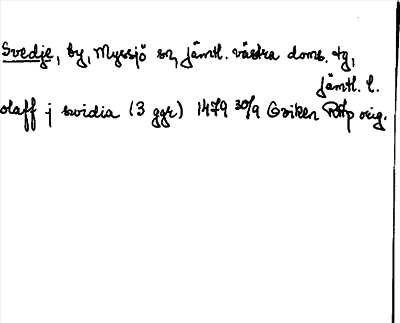 Svedje, by, Myssjö sn, Jämtl. västra doms. tg,
Jämtl. l.
olaff j swidia (3 ggr) 1479 30/9 Oviken RAp orig.